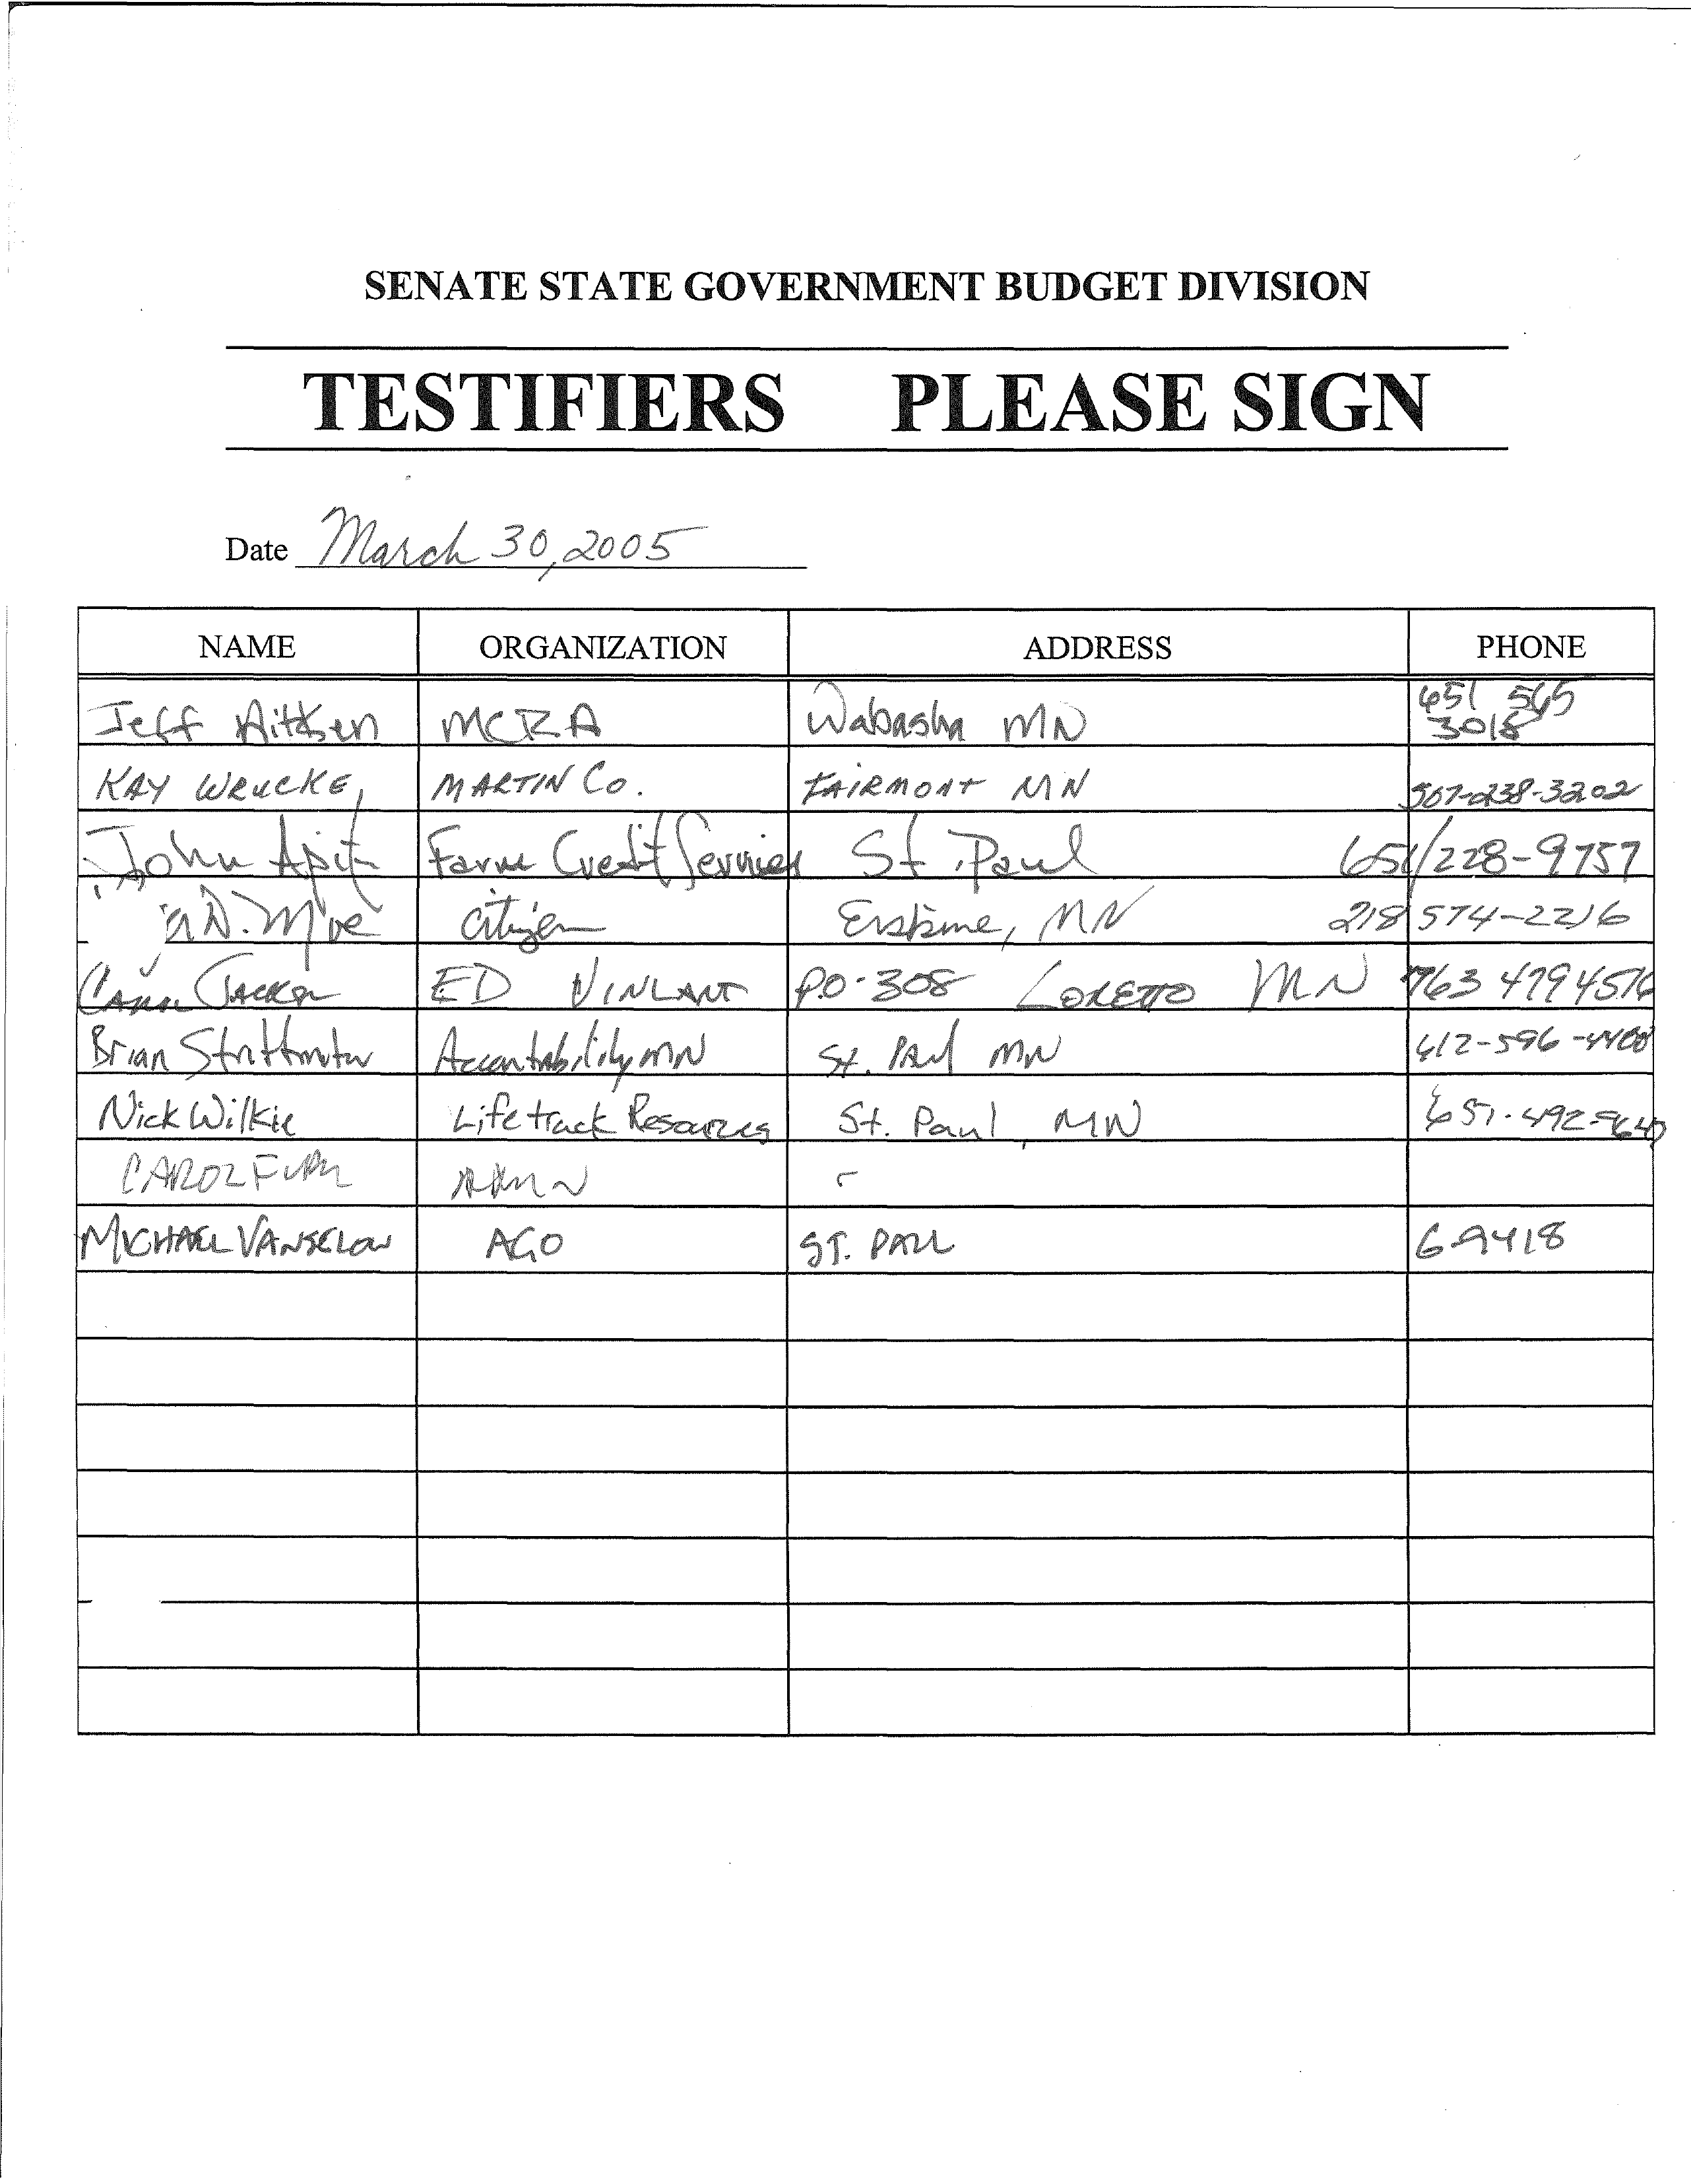 SENATE STATE GOVERNMENT BUDGET DIVISION
TESTIFIERS PLEASE SIGN
Date March 30, 2005
NAME ORGANIZATION ADDRESS PHONE
Jeff Aitken MCRA Wabasha MN 651 565 3018
KAY WRUCKE, MARTIN CO. FAIRMONT MN 507-238-3202
John Apitz Farm Credit Services St. Paul 651/228-9757
D. Moe citizen Erskine, MN 218 574-2216
ED VINLANT P.O-308 LORETTO MN 763 479 4576
Brian Accountability MN St. Paul MN 612-596-
Nick Wilkie Lifetrack Resources St. Paul, MN 651-492-
CAROL
MICHAEL VANSELOW AGO ST. PAUL 6-9418